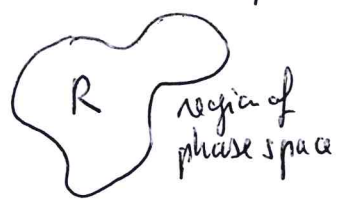 R
region of
phase space